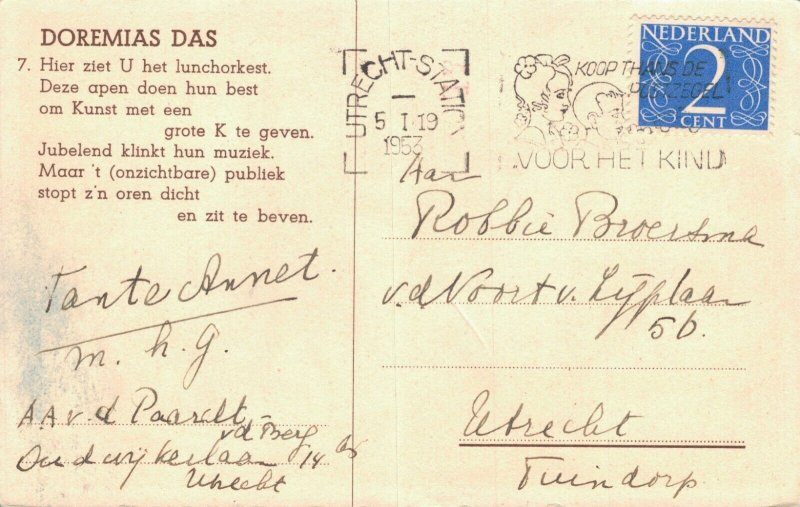 DOREMIAS DAS
7. Hier ziet U het lunchorkest.
Deze apen doen hun best
om Kunst met een
grote K te geven.
Jubelend klinkt hun muziek.
Maar 't (onzichtbare) publiek
stopt z'n oren dicht
en zit te beven.
Tante Annet.
m. h. g.
A A v. d Paardt
v d Berg
Oudwijkerlaan 14 bs
Utrecht
UTRECHT-STATION
5 I 19
1953
KOOP THANS DE
POSTZEGEL
VOOR HET KIND
NEDERLAND
2
CENT
Aan
Robbie Broersma
v.d. Voort v. Zijplaan
56.
Utrecht
Tuindorp